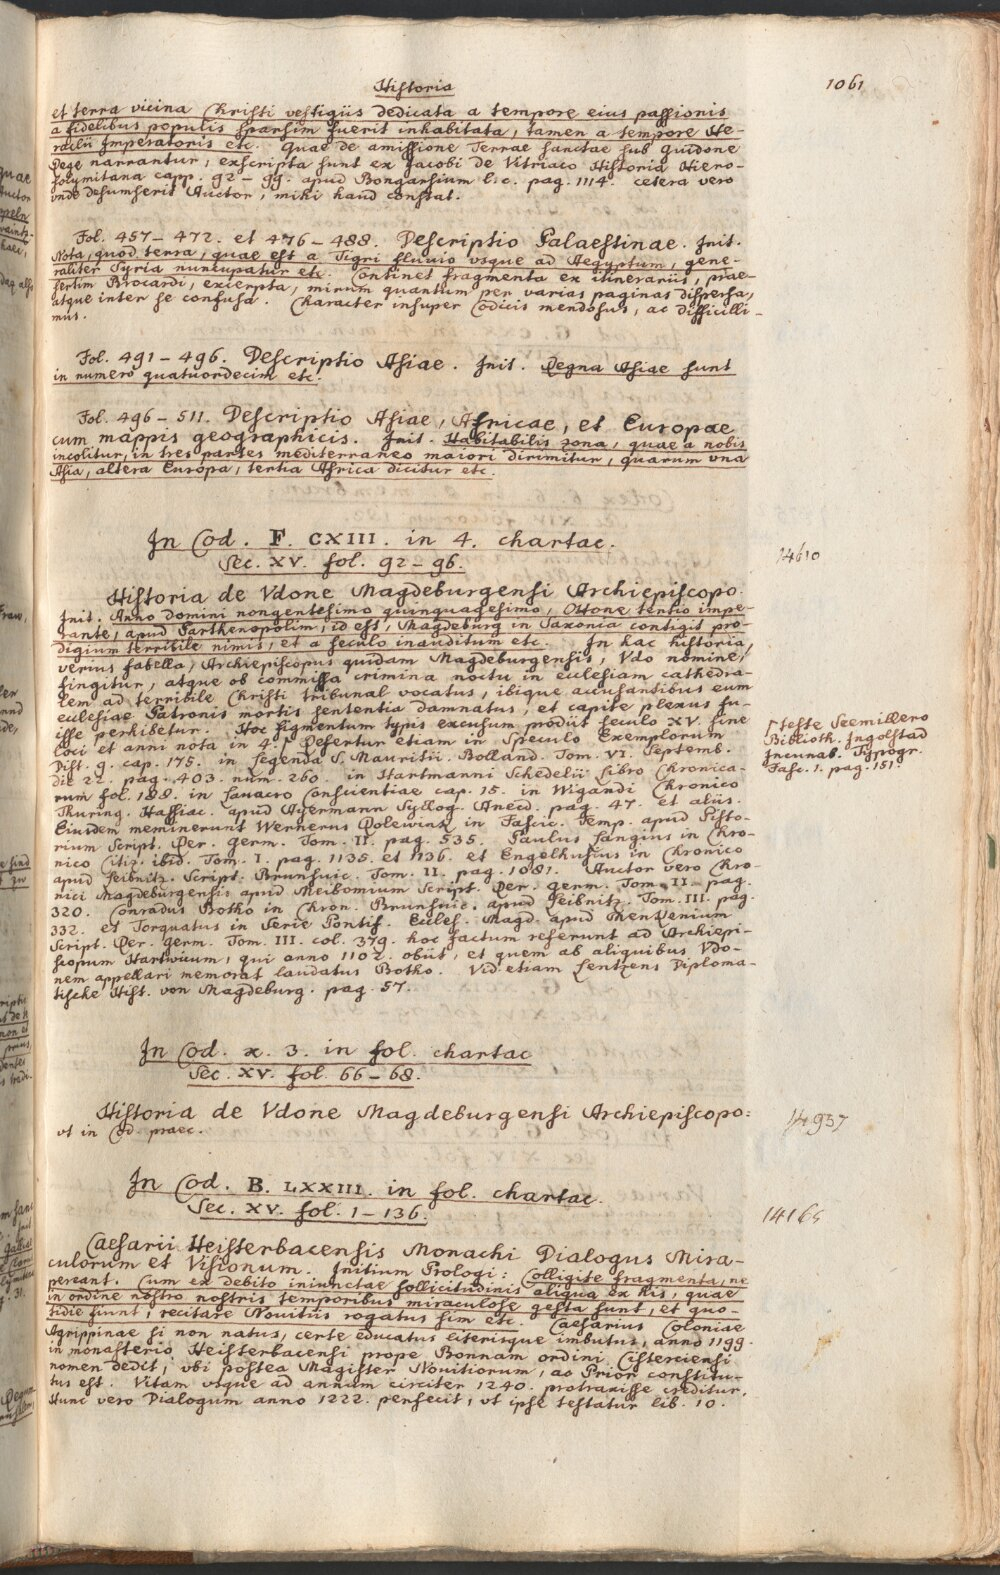 Historia
1061
et terra vicina Christi vestigiis dedicata a tempore eius passionis
a fidelibus populis sparsim fuerit inhabitata, tamen a tempore He-
raclii Imperatoris etc. Quae de amissione Terrae sanctae sub Guidone
Rege narrantur, exscripta sunt ex Jacobi de Vitriaco Historia Hiero-
solymitana capp. 92 - 99. apud Bongarsium l. c. pag. 1114. cetera vero
unde desumserit Auctor, mihi haud constat.
Fol. 457 - 472. et 476 - 488. Descriptio Palaestinae. Init.
Nota, quod terra, quae est a Tigri fluvio usque ad Aegyptum, gene-
raliter Syria nuncupatur etc. Continet fragmenta ex itinerariis, prae-
sertim Brocardi, excerpta, mirum quantum per varias paginas dispersa,
atque inter se confusa. Character insuper Codicis mendosus, ac difficilli-
mus.
Fol. 491 - 496. Descriptio Asiae. Init. Regna Asiae sunt
in numero quatuordecim etc.
Fol. 496 - 511. Descriptio Asiae, Africae, et Europae
cum mappis geographicis. Init. Habitabilis zona, quae a nobis
incolitur, in tres partes mediterraneo maiori dirimitur, quarum una
Asia, altera Europa, tertia Africa dicitur etc.
In Cod. F. CXIII. in 4. chartac.
Sec. XV. fol. 92 - 96.
14610
Historia de Vdone Magdeburgensi Archiepiscopo.
Init. Anno domini nongentesimo quinquagesimo, Ottone tertio impe-
rante, apud Parthenopolim, id est, Magdeburg in Saxonia contigit pro-
digium terribile nimis, et a seculo inauditum etc. In hac historia,
verius fabella, Archiepiscopus quidam Magdeburgensis, Vdo nomine,
fingitur, atque ob commissa crimina noctu in ecclesiam cathedra-
lem ad terribile Christi tribunal vocatus, ibique accusantibus eum
ecclesiae Patronis mortis sententia damnatus, et capite plexus fu-
isse perhibetur. Hoc figmentum typis excusum prodiit seculo XV. sine
loci et anni nota in 4.⌈ Refertur etiam in Speculo Exemplorum
Dist. 9. cap. 175. in Legenda S. Mauritii. Bolland. Tom. VI. Septemb.
die 22. pag. 403. num. 260. in Hartmanni Schedelii Libro Chronica-
rum fol. 188. in Lavacro Conscientiae cap. 15. in Wigandi Chronico
Thuring. Hassiac. apud Ayermann Syllog. Anecd. pag. 47. et aliis.
Eiusdem meminerunt Wernerus Rolewink in Fascic. Temp. apud Pisto-
rium Script. Rer. Germ. Tom. II. pag. 535. Paulus Langius in Chro-
nico Citiz. ibid. Tom. I. pag. 1135. et 1136. et Engelhusius in Chronico
apud Leibnitz. Script. Brunsuic. Tom. II. pag. 1081. Auctor vero Chro-
nici Magdeburgensis apud Meibomium Script. Rer. germ. Tom. II. pag.
320. Conradus Botho in Chron. Brunsuic. apud Leibnitz. Tom. III. pag.
332. et Torquatus in Serie Pontif. Eccles. Magd. apud Menkenium
Script. Rer. germ. Tom. III. col. 379. hoc factum referunt ad Archiepi-
scopum Hartwicum, qui anno 1102. obiit, et quem ab aliquibus Vdo-
nem appellari memorat laudatus Botho. Vid. etiam Lentzens Diploma-
tische Hist. von Magdeburg. pag. 57.
⌈ teste Seemillero
Biblioth. Ingolstad
Incunab. Typogr.
Fasc. 1. pag. 151.
In Cod. x. 3. in fol. chartac
Sec. XV. fol. 66 - 68.
Historia de Vdone Magdeburgensi Archiepiscopo:
ut in Cod. praec.
14937
In Cod. B. LXXIII. in fol. chartac.
Sec. XV. fol. 1 - 136.
14165
Caesarii Heisterbacensis Monachi Dialogus Mira-
culorum et Visionum. Initium Prologi: Colligite fragmenta, ne
pereant. Cum ex debito iniunctae sollicitudinis aliqua ex his, quae
in ordine nostro nostris temporibus miraculose gesta sunt, et quo-
tidie fiunt, recitare Novitiis rogatus sim etc. Caesarius Coloniae
Agrippinae si non natus, certe educatus literisque imbutus, anno 1199.
in monasterio Heisterbacensi prope Bonnam ordini Cisterciensi
nomen dedit, ubi postea Magister Novitiorum, ac Prior constitu-
tus est. Vitam usque ad annum circiter 1240. protraxisse creditur.
Hunc vero Dialogum anno 1222. perfecit, ut ipse testatur lib. 10.